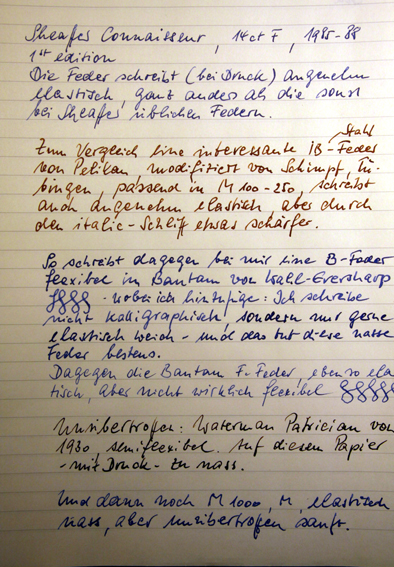 Sheaffer Connaisseur, 14ct F, 1985-88
1st edition
Die Feder schreibt (bei Druck) angenehm
elastisch, ganz anders als die sonst
bei Sheaffer üblichen Federn.
Stahl
Zum Vergleich eine interessante IB-Feder
von Pelikan modifiziert von Schimpf Tü-
bingen passend in M 100-250, schreibt
auch angenehm elastisch, aber durch
den italic-Schliff etwas schärfer.
So schreibt dagegen bei mir eine B-Feder
flexibel im Bantam von Wahl Eversharp
wobei ich hinzufüge: Ich schreibe
nicht kalligraphisch, sondern nur gerne
elastisch weich - und das tut diese nasse
Feder bestens.
Dagegen die Bantam F-Feder ebenso elas
tisch, aber nicht wirklich flexibel
Unübertroffen: Waterman Patrician von
1930 semiflexibel. Auf diesem Papier
- mit Druck - zu nass.
Und dann noch M 1000, M, elastisch
nass, aber unübertroffen sanft.